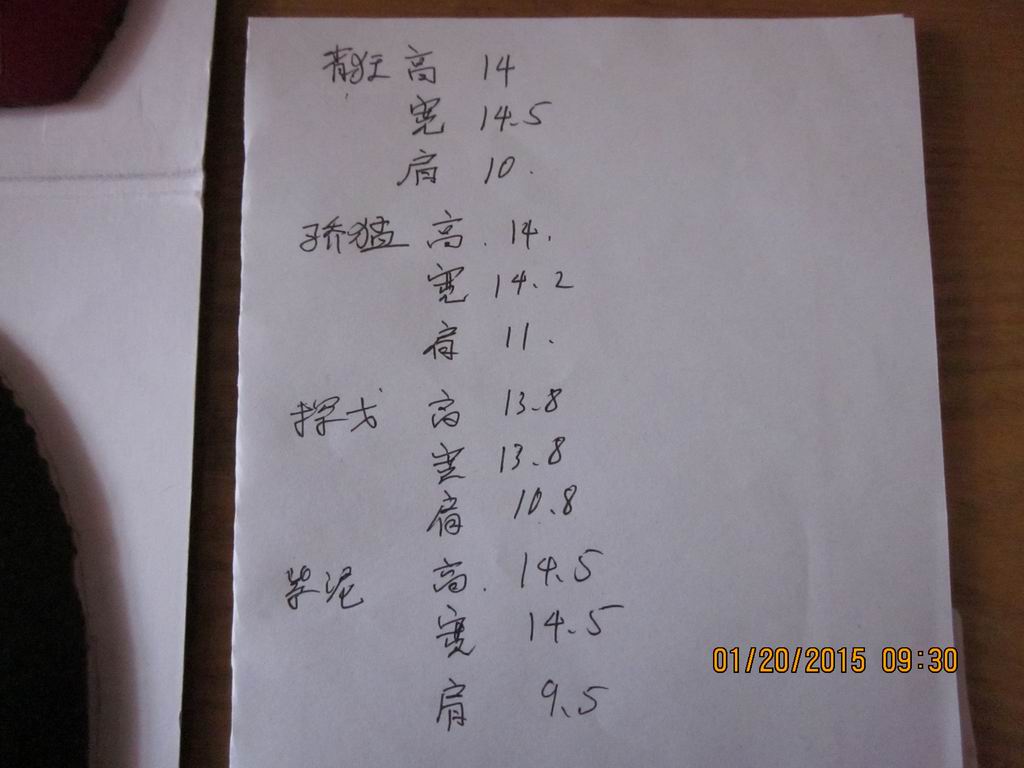 青狂 高 14
宽 14.5
肩 10.
骄猛 高. 14.
宽 14.2
肩 11.
探戈 高 13.8
宽 13.8
肩 10.8
紫泥 高. 14.5
宽 14.5
肩 9.5
01/20/2015 09:30